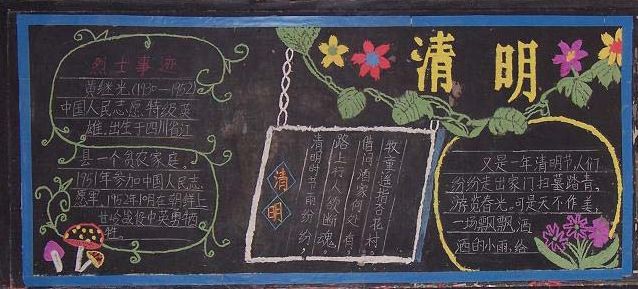 清明
烈士事迹
黄继光,(1930—1952)
中国人民志愿特级英
雄.出生于四川省江
县一个贫农家庭.
1951年参加中国人民志
愿军.1952年10月在朝鲜上
甘岭战役中英勇牺
牲.
清明
清明时节雨纷纷,
路上行人欲断魂。
借问酒家何处有,
牧童遥指杏花村。
又是一年清明节,人们
纷纷走出家门扫墓踏青,
游览春光.可是天不作美,
一场飘飘洒
洒的小雨,给